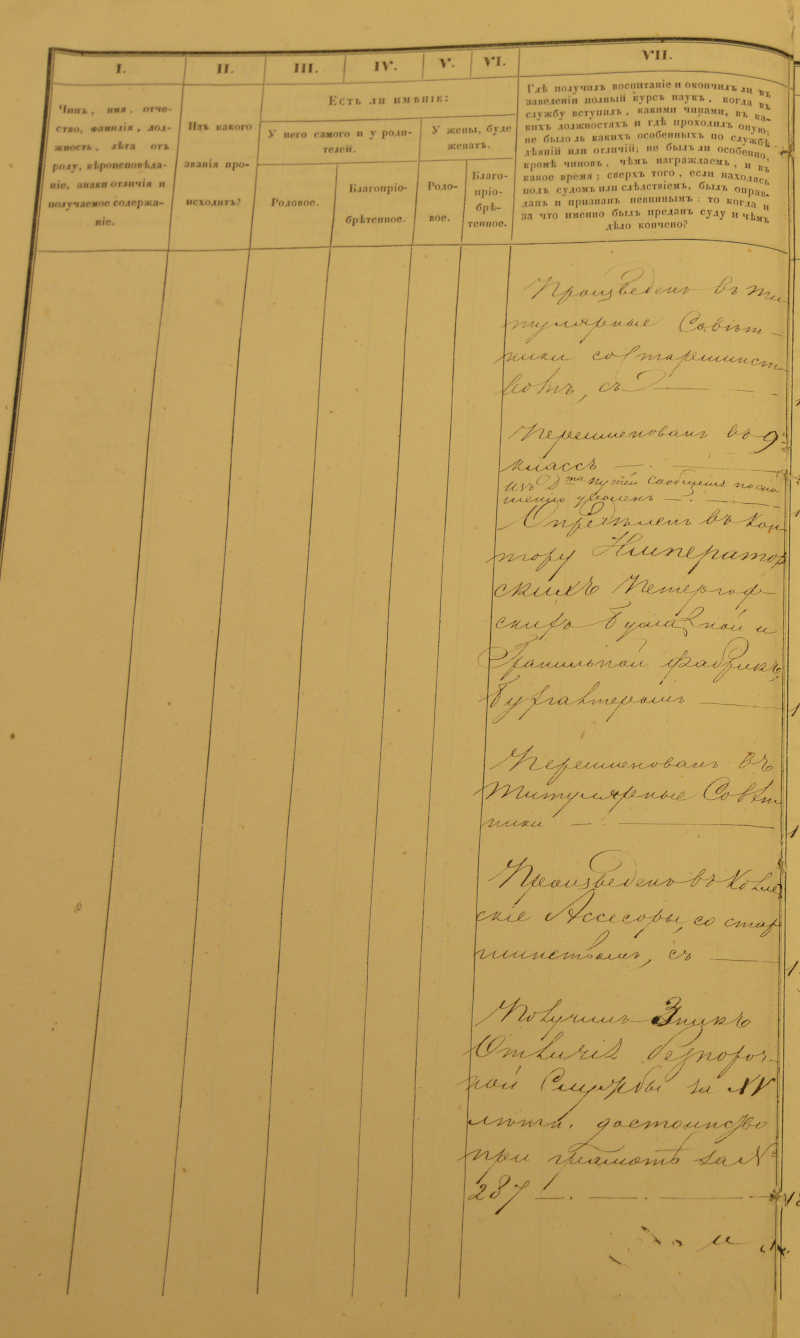 I. II. III. IV. V. VI. VII.
Чинъ, имя, отче-
ство, фамилія, дол-
жность, лѣта отъ
роду, вѣроисповѣда-
ніе, знаки отличія и
получаемое содержа-
ніе.
Изъ какого
званія про-
исходитъ?
Есть ли имѣніе:
У него самого и у роди-
телей.
У жены, буде
женатъ.
Родовое.
Благопріо-
брѣтенное.
Родо-
вое.
Благо-
пріо-
брѣ-
тенное.
Гдѣ получилъ воспитаніе и окончилъ ли въ
заведеніи полный курсъ наукъ, когда въ
службу вступилъ, какими чинами, въ ка-
кихъ должностяхъ и гдѣ проходилъ оную;
не было ль какихъ особенныхъ по службѣ
дѣяній или отличій; не былъ ли особенно,
кромѣ чиновъ, чѣмъ награждаемъ, и въ
какое время; сверхъ того, если находясь
подъ судомъ или слѣдствіемъ, былъ оправ-
данъ и признанъ невиннымъ: то когда и
за что именно былъ преданъ суду и чѣмъ
дѣло кончено?
Произведенъ въ ти-
тулярные Совѣт-
ники со старшинст-
вомъ, съ
Переименованъ въ 9й
классъ
Изъ Дтва путей Сообщенія
уволенъ
Опредѣленъ въ Кон-
тору Император
скихъ Петергоф-
скихъ Бумажной и
Гранильной фабрикъ
Бухгалтеромъ
Переименованъ въ
Титулярные Совѣт
ники
Произведенъ въ Коллеж
скіе Ассесоры, со стар
шинствомъ, съ
Получилъ Знакъ
Отличія безпороч-
ной Службы за XV
лѣтъ,
при грамотѣ за №
287